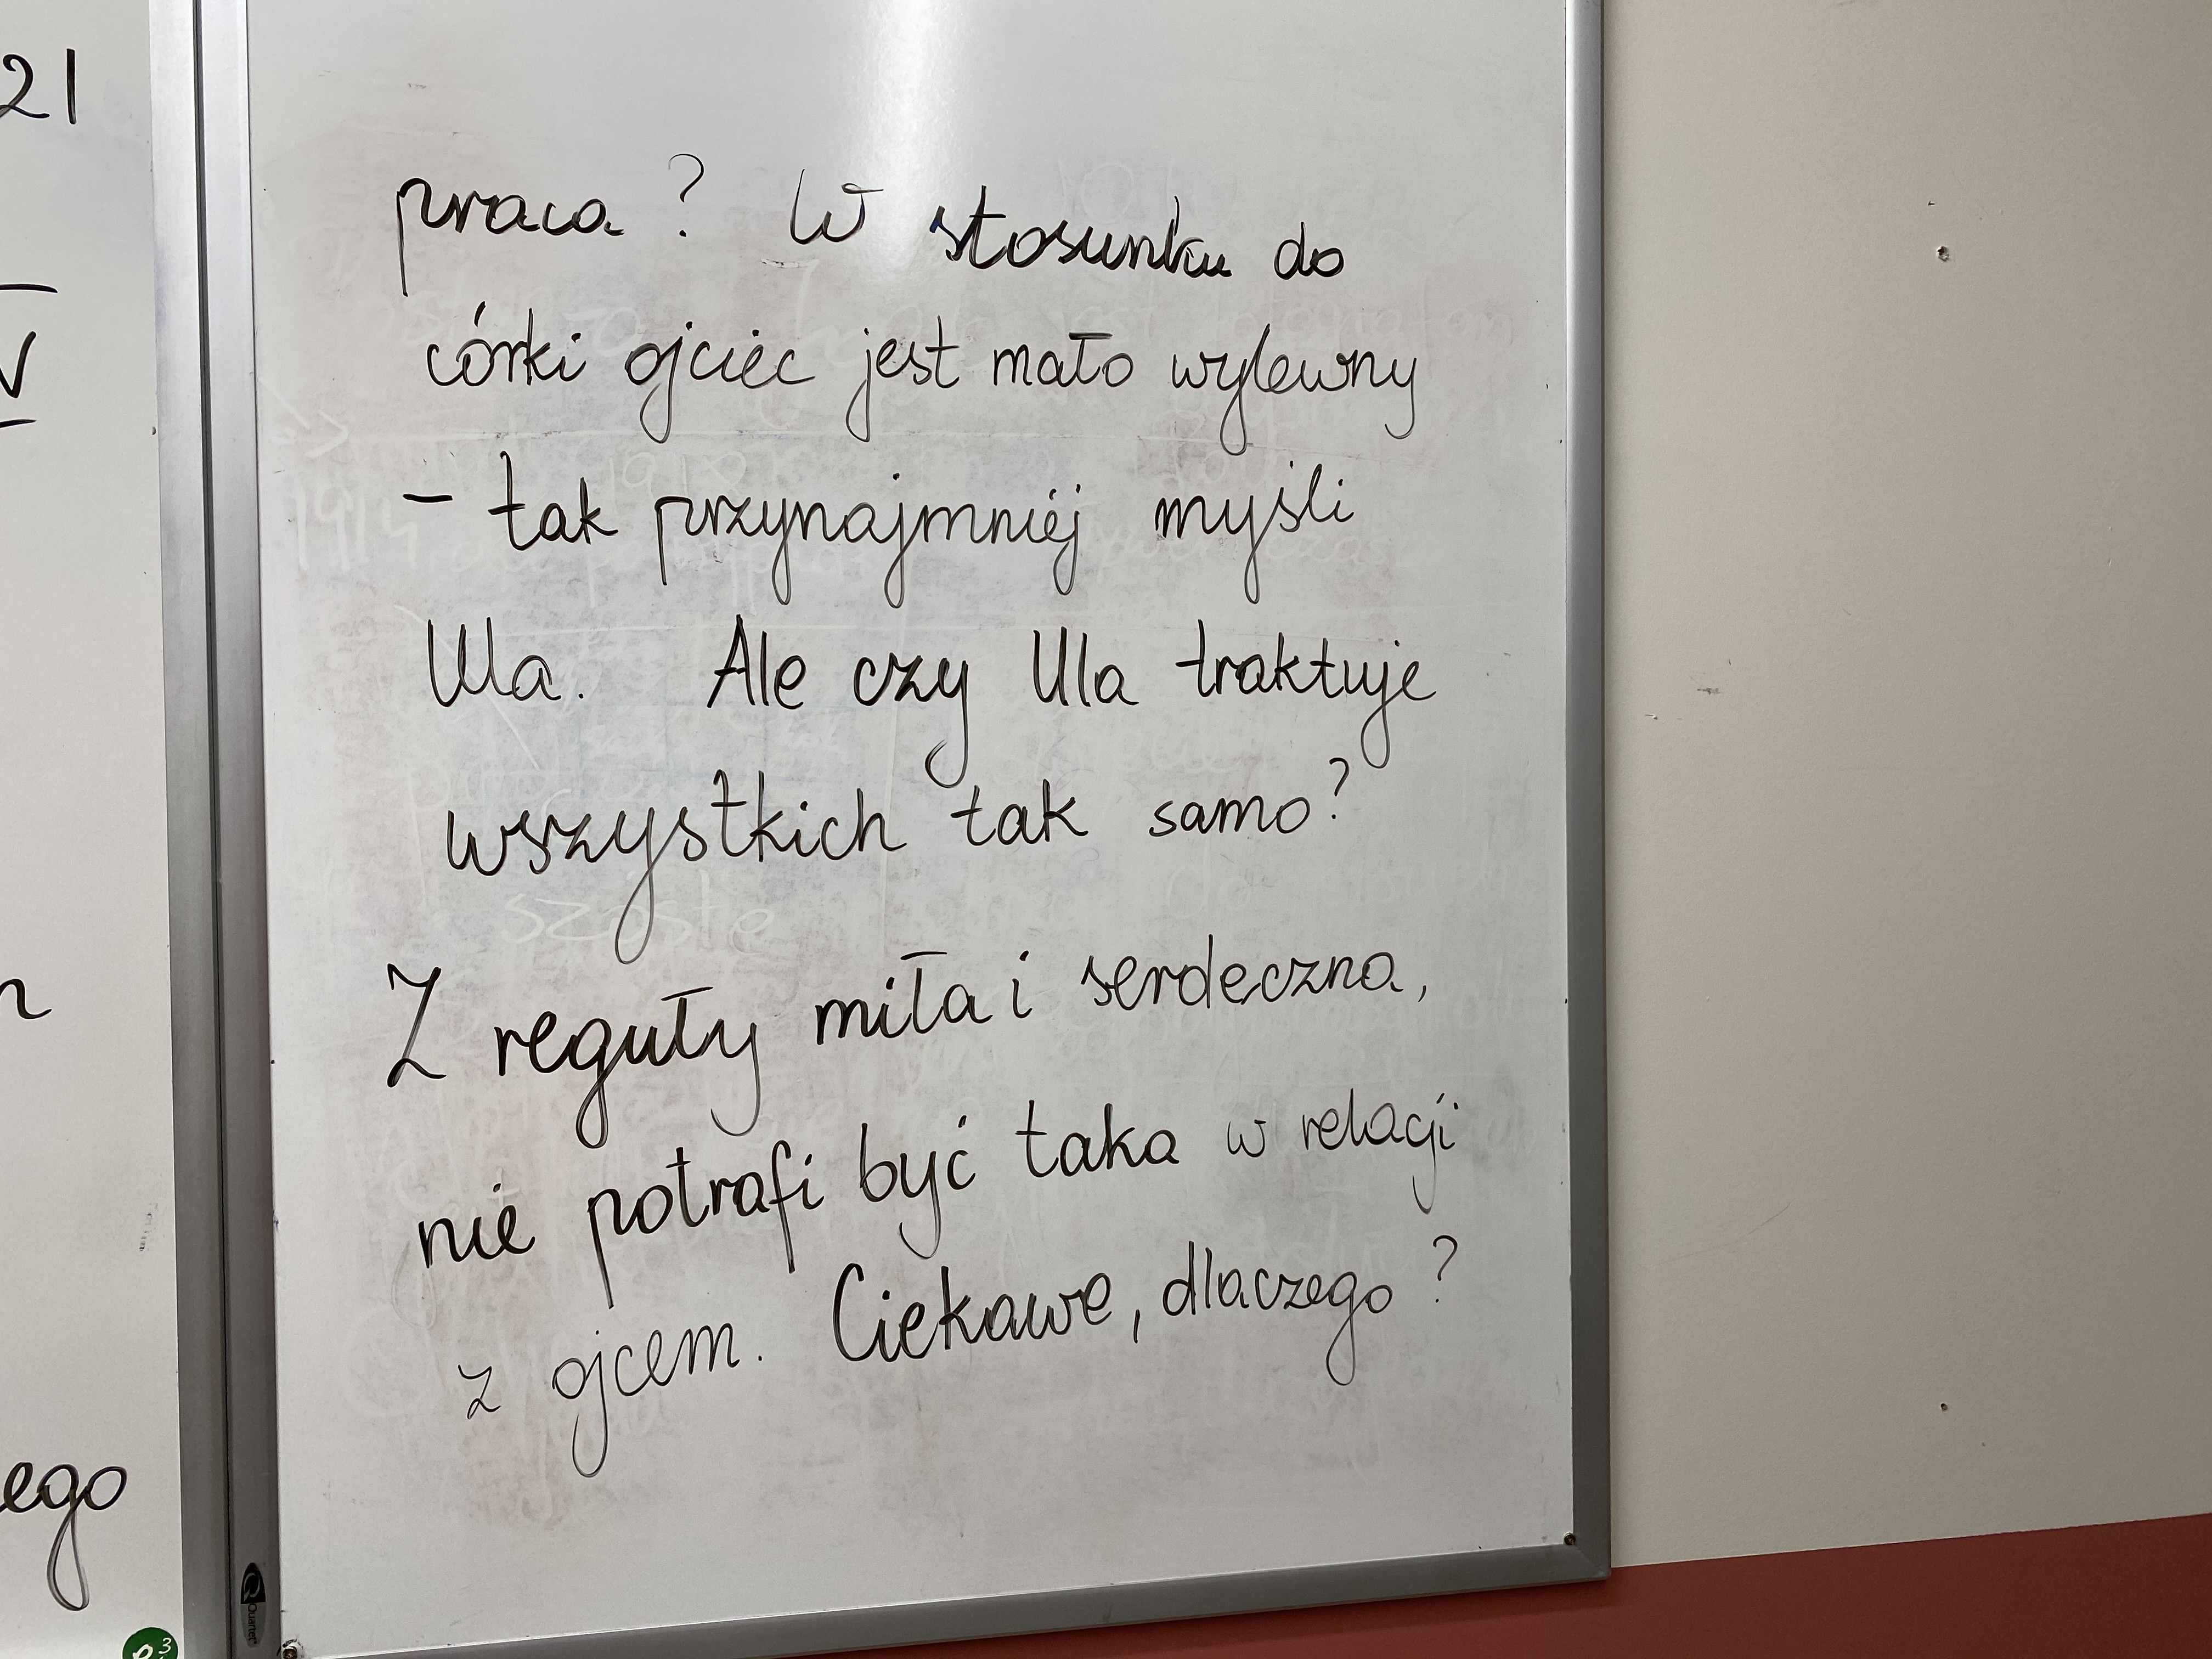 21
praca? W stosunku do
córki ojciec jest mało wylewny
- tak przynajmniej myśli
Ula. Ale czy Ula traktuje
wszystkich tak samo?
Z reguły miła i serdeczna,
nie potrafi być taka w relacji
z ojcem. Ciekawe, dlaczego?
ego
Quartet